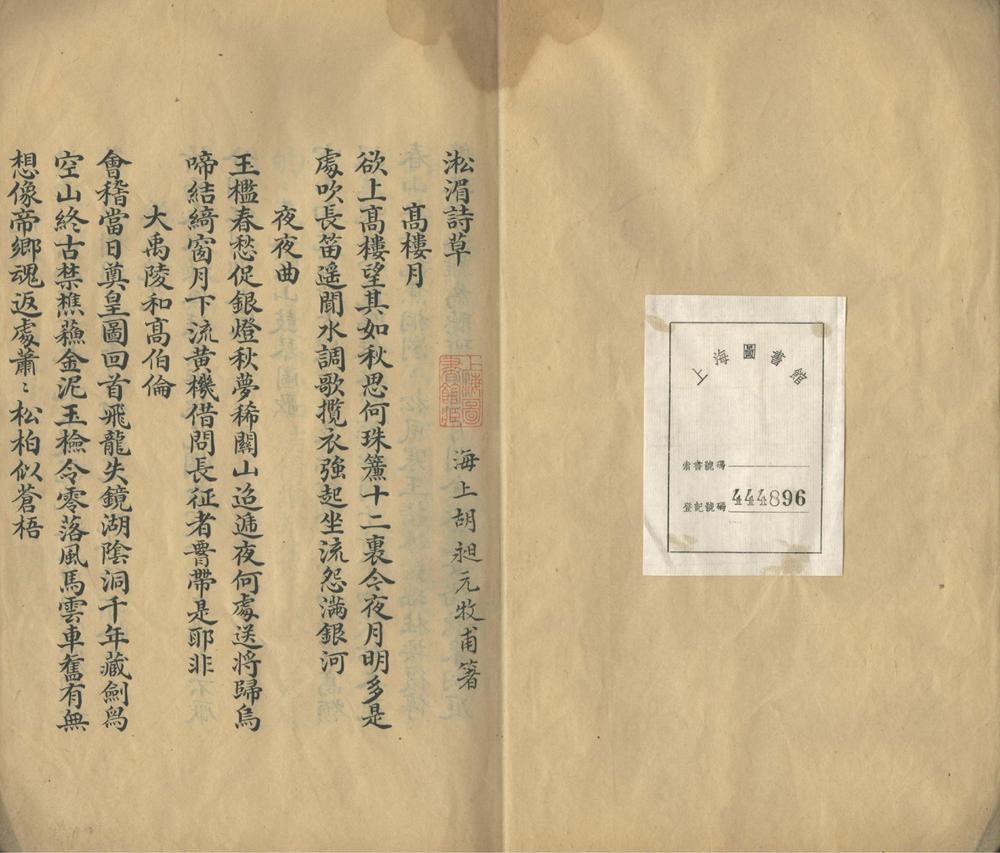 上海圖書館
索書號碼
登記號碼 444896
淞湄詩草 海上胡昶元牧甫箸
上海圖書館藏
高樓月
欲上高樓望其如秋思何珠簾十二裏今夜月明多是
處吹長笛遥聞水調歌攬衣強起坐流怨滿銀河
夜夜曲
玉檻春愁促銀燈秋夢稀關山迢遞夜何處送將歸烏
啼結綺窗月下流黄機借問長征者帶是耶非
大禹陵和高伯倫
會稽當日奠皇圖回首飛龍失鏡湖陰洞千年藏劍舄
空山終古禁樵蘓金泥玉檢今零落風馬雲車舊有無
想像帝鄉魂返處蕭〻松柏似蒼梧